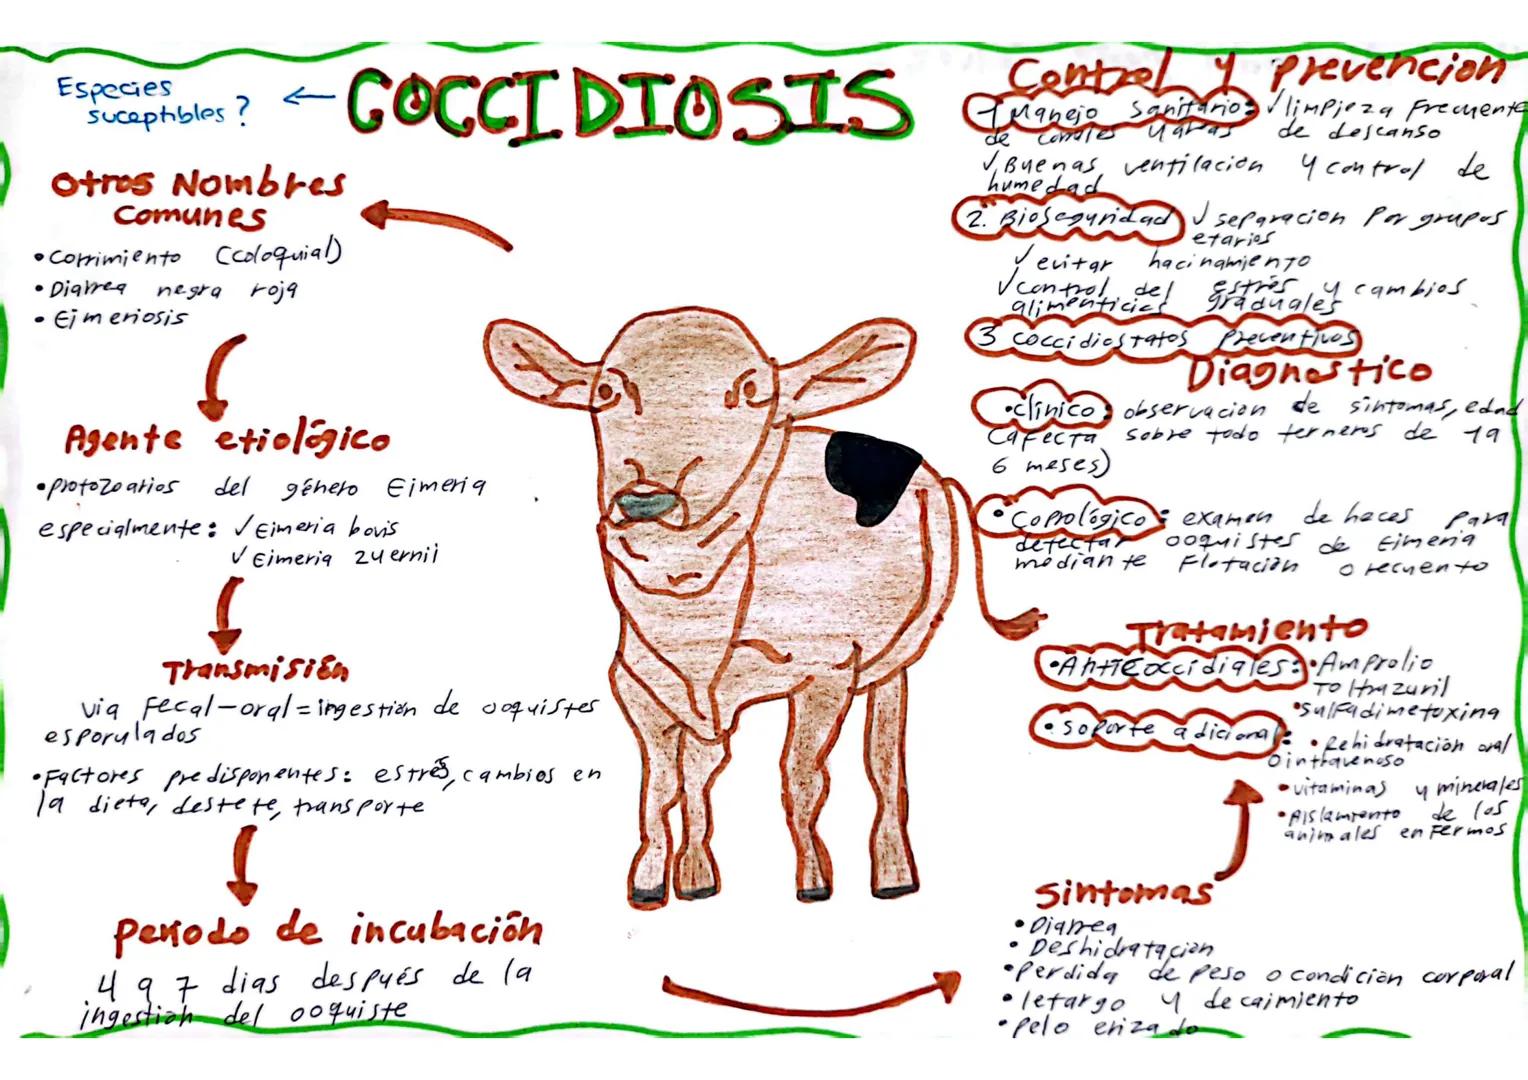 COCCIDIOSIS
Especies
suceptibles ?
Otros Nombres
Comunes
• Corrimiento (coloquial)
• Diarrea negra roja
• Eimeriosis
Agente etiológico
• protozoarios del género Eimeria
especialmente: ✓ Eimeria bovis
✓ Eimeria zuernii
Transmisión
via Fecal-oral = ingestión de ooquistes
esporulados
• Factores predisponentes: estrés, cambios en
la dieta, destete, transporte
periodo de incubación
4 a 7 dias después de la
ingestión del ooquiste
Control y prevencion
1 Manejo Sanitario: ✓ limpieza Frecuente
de corrales y areas de descanso
✓ Buenas ventilación y control de
humedad
2. Bioseguridad ✓ separacion Por grupos
etarios
✓ evitar hacinamiento
✓ control del estrés y cambios
alimenticios graduales
3 coccidiostatos preventivos
Diagnostico
• clínico: observacion de sintomas, edad
(afecta sobre todo terneros de 1 a
6 meses)
• Coprológico: examen de heces para
detectar ooquistes de Eimeria
mediante Flotación o recuento
Tratamiento
• Anticoccidiales: • Amprolio
Toltrazuril
• sulfadimetoxina
• soporte adicional: • Rehidratación oral
o intravenoso
• vitaminas y minerales
• Aislamiento de los
animales enFermos
Sintomas
• Diarrea
• Deshidratación
• perdida de peso o condición corporal
• letargo y decaimiento
• pelo erizado